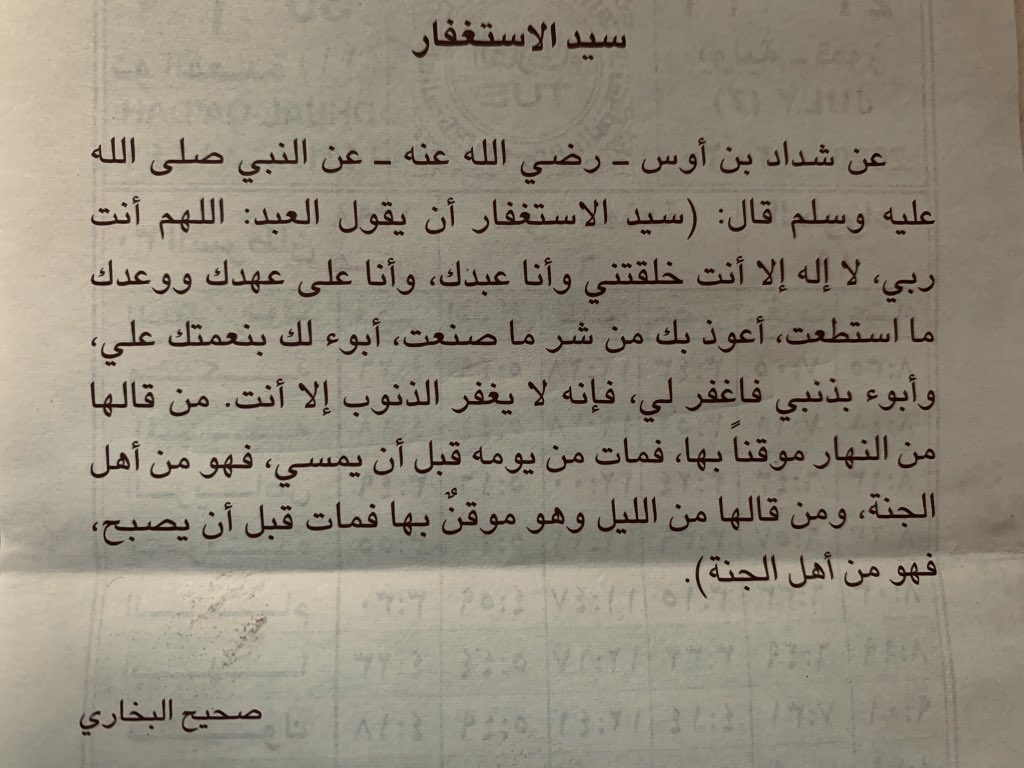 سيد الاستغفار
عن شداد بن أوس ـ رضي الله عنه ـ عن النبي صلى الله
عليه وسلم قال: (سيد الاستغفار أن يقول العبد: اللهم أنت
ربي، لا إله إلا أنت خلقتني وأنا عبدك، وأنا على عهدك ووعدك
ما استطعت، أعوذ بك من شر ما صنعت، أبوء لك بنعمتك علي،
وأبوء بذنبي فاغفر لي، فإنه لا يغفر الذنوب إلا أنت. من قالها
من النهار موقناً بها، فمات من يومه قبل أن يمسي، فهو من أهل
الجنة، ومن قالها من الليل وهو موقنٌ بها فمات قبل أن يصبح،
فهو من أهل الجنة).
صحيح البخاري